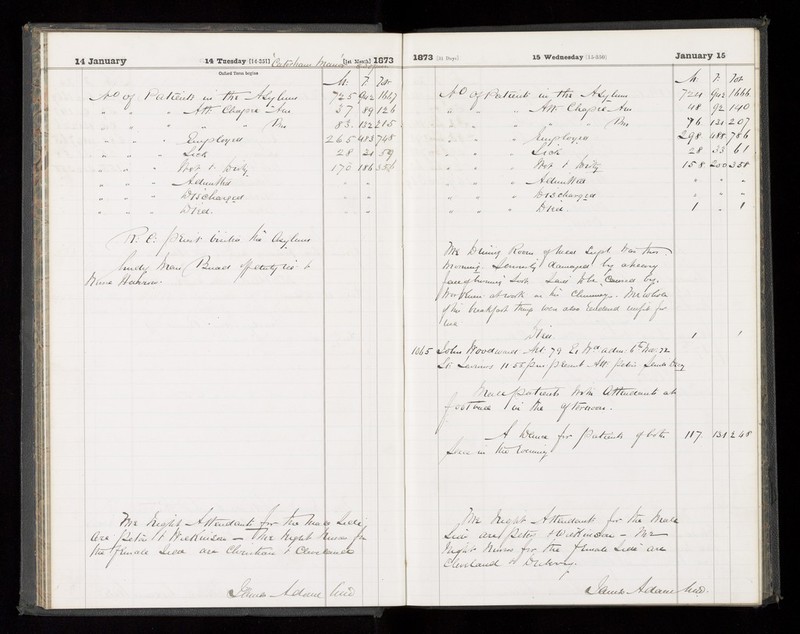 14 January
14 Tuesday [14-351]
[1st Month] 1873
Oxford Term begins
M. F. Tot.
No of Patients in the Asylum 725 942 1667
" " " Att Chapel Am 37 89 126
" " " " " Pm 83 132 215
" " " Employed 265 413 748
" " " Sick 28 31 59
" " " Wet & Dirty 170 186 356
" " " Admitted " "
" " " Discharged " "
" " " Died. " "
R. C. priest visited the Asylum
The Night Attendants for the Male Side
are Peter & Wilkinson — The Night Nurses for
the female Side are Christian & Cleveland
James Adam M.D.
1873 [31 Days]
15 Wednesday [15-350]
January 15
M. F. Tot.
No of Patients in the Asylum 724 942 1666
" " " Att Chapel Am 48 92 140
" " " " Pm 76 131 207
" " " Employed 298 488 786
" " " Sick 28 33 61
" " " Wet & Dirty 158 200 358
" " " Admitted " " "
" " " Discharged " " "
" " " Died. 1 " 1
The Dining Room of Med Supt was this
morning Seriously damaged by a heavy
fall of burning Soot Said to be caused by
Workmen at work in the Chimney. The whole
of the breakfast things were also rendered unfit for
use
Died 1 1
1065 John Woodward Aet 79
Male patients with Attendants at
football in the afternoon.
A Dance for patients of both 117 131 248
Sexes in the Evening
The Night Attendants for the Male
Side are Peter & Wilkinson — The
Night Nurses for the female Side are
Cleveland &
James Adam M.D.